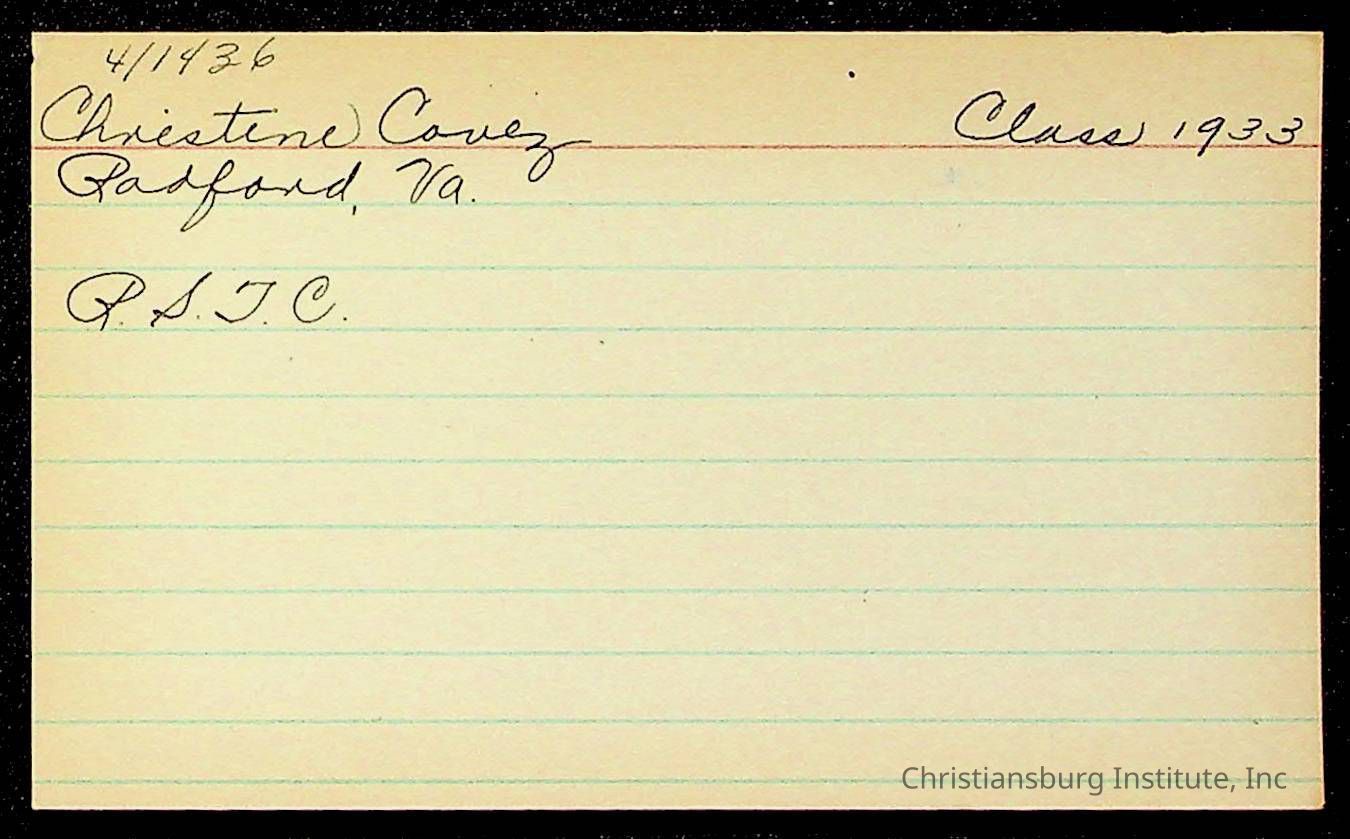 4/1436
Christine Covez Class 1933
Radford, Va.
R. S. T. C.
Christiansburg Institute, Inc